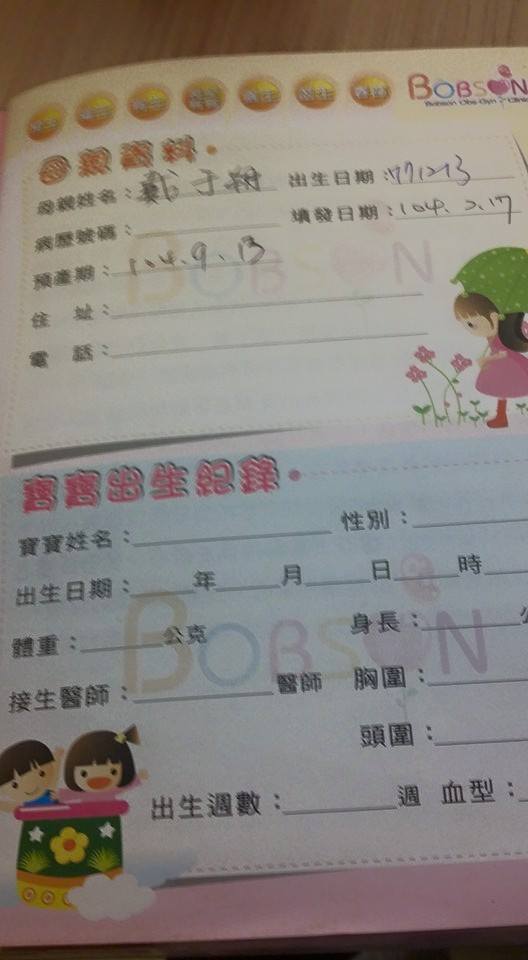 BOBSON
Bobson Obs-Gyn
母親資料
母親姓名：戴于 出生日期：77.12.13
病歷號碼： 填發日期：104.2.17
預產期：104.9.13
住 址：
電 話：
BOBSON
寶寶出生紀錄
寶寶姓名： 性別：
出生日期： 年 月 日 時
體重： 公克 身長：
BOBSON
接生醫師： 醫師 胸圍：
頭圍：
出生週數： 週 血型：